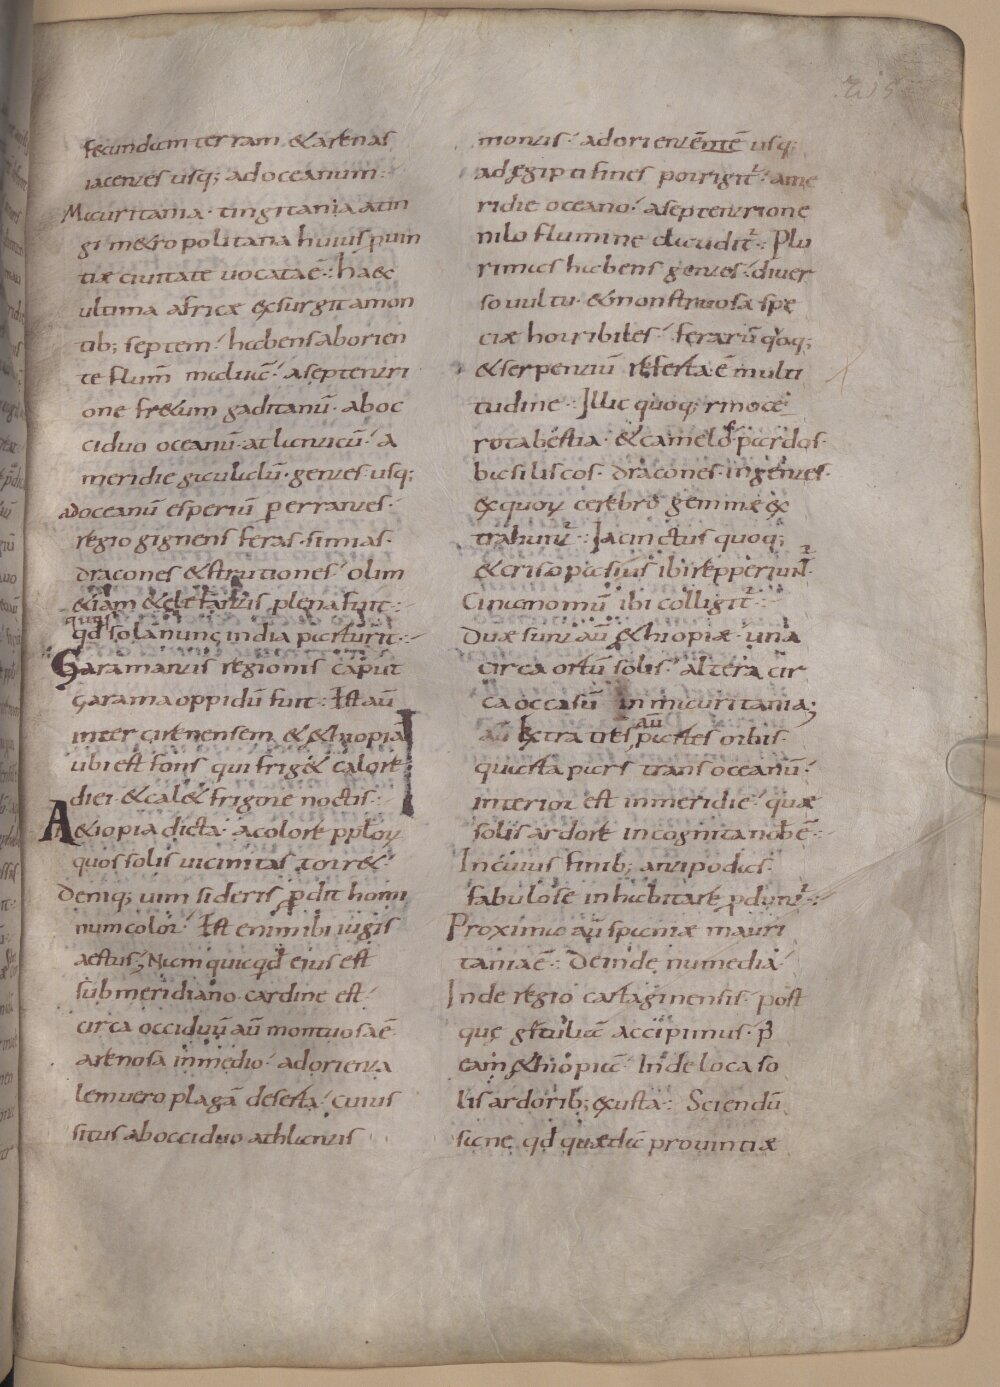 fecundum terram. & arenas
iacentes usq; ad oceanum:
Mauritania. tingitania a tin
gi metropolitana huius puin
tiæ ciuitate uocata ē: haec
ultima africæ exsurgit a mon
tib; septem. habens ab orien
te flum̄ maluā. a septentri
one fretum gaditanū. ab oc
ciduo oceanū atlanticū. a
meridie gaulalū. gentes usq;
ad oceanū esperiū perrantes.
regio gignens feras. simias.
dracones & strutiones. olim
etiam & elefantis plena fuit:
quos
qđ sola nunc india parturit:
Garamantis regionis caput
garama oppidū fuit: Est aū
inter cirenensem & ethiopiā
ubi est fons qui friget calore
diei. & calet frigore noctis:
Aetiopia dicta. a colore pploꝝ
quos solis uicinitas torret
Deniq; uim sideris prodit homi
num color. Est enim ibi iugis
aestus; Nam quicqđ eius est
sub meridiano cardine est.
circa occiduū aū montuosa ē
arenosa in medio. ad orienta
lem uero plagā deserta. cuius
situs ab occiduo athlantis
montis. ad orientē usq;
ad egipti fines porrigit̄. a me
ridie oceano. a septentrione
nilo flumine claudit̄: Plu
rimas habens gentes. diuer
so uultu. & monstruosa spe
ciæ horribiles. ferarū qoq;
& serpentiū referta ē multi
tudine: Illic quoq; rinoce
rota bestia. & camelo pardos
basiliscos. dracones ingentes.
ex quoꝝ cerebro gemmæ ex
trahunt̄: Iacinctus quoq;
& crisopassus ibi repperiunt̄.
Cinamomū ibi colligit̄:
Duæ sunt aū ethiopiæ. una
circa ortū solis. altera cir
ca occasū in mauritania;
aū
Extra tres partes orbis
quarta pars trans oceanū.
interior est in meridie. quæ
solis ardore incognita nob ē:
In cuius finib; antipodas.
fabulose inhabitare produnt̄:
Proximo aū spaniæ mauri
tania ē: Deinde numedia.
Inde regio cartaginensis. post
que getuliā accipimus. p
eam ethiopiā. Inde loca so
lis ardorib; exusta: Sciendū
sane qđ quædā prouintiæ